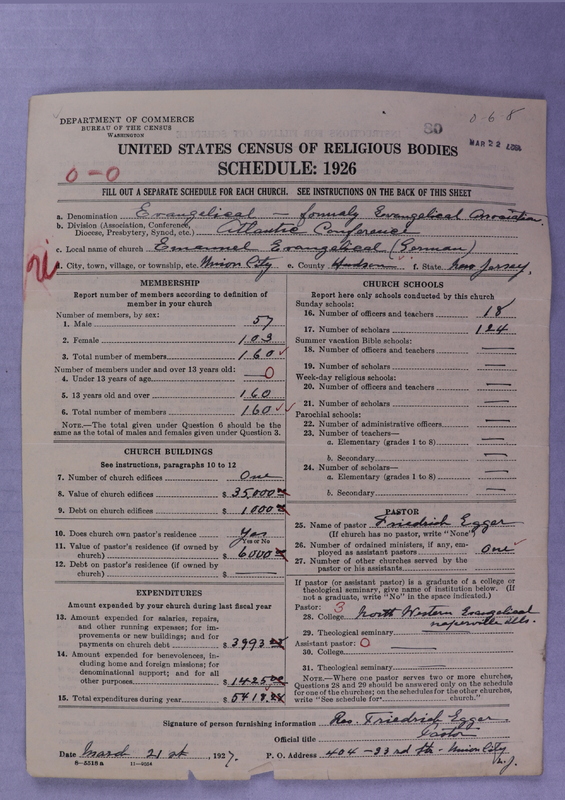 DEPARTMENT OF COMMERCE
BUREAU OF THE CENSUS
WASHINGTON
80
0-6-8
MAR 22
UNITED STATES CENSUS OF RELIGIOUS BODIES
SCHEDULE: 1926
0-0
FILL OUT A SEPARATE SCHEDULE FOR EACH CHURCH. SEE INSTRUCTIONS ON THE BACK OF THIS SHEET
a. Denomination Evangelical — formaly Evangelical Association
b. Division (Association, Conference, Diocese, Presbytery, Synod, etc.) Atlantic Conference
c. Local name of church Emanuel Evangelical (German)
d. City, town, village, or township, etc. Union City e. County Hudson f. State New Jersey.
MEMBERSHIP
Report number of members according to definition of member in your church
Number of members, by sex:
1. Male 57
2. Female 103
3. Total number of members 160
Number of members under and over 13 years old:
4. Under 13 years of age 0
5. 13 years old and over 160
6. Total number of members 160
NOTE.—The total given under Question 6 should be the same as the total of males and females given under Question 3.
CHURCH BUILDINGS
See instructions, paragraphs 10 to 12
7. Number of church edifices One
8. Value of church edifices $ 35,000
9. Debt on church edifices $ 1000
10. Does church own pastor's residence? Yes
Yes or No
11. Value of pastor's residence (if owned by church) $ 6000
12. Debt on pastor's residence (if owned by church) $ —
EXPENDITURES
Amount expended by your church during last fiscal year
13. For salaries, repairs, and other running expenses; for improvements or new buildings; and for payments on church debt $ 3993
14. For benevolences, including home and foreign missions; for denominational support; and for all other purposes $ 1425
15. Total expenditures during year $ 5418
CHURCH SCHOOLS
Report here only schools conducted by this church
Sunday schools:
16. Number of officers and teachers 18
17. Number of scholars 124
Summer vacation Bible schools:
18. Number of officers and teachers —
19. Number of scholars —
Week-day religious schools:
20. Number of officers and teachers —
21. Number of scholars —
Parochial schools:
22. Number of administrative officers —
23. Number of teachers—
a. Elementary (grades 1 to 8) —
b. Secondary —
24. Number of scholars—
a. Elementary (grades 1 to 8) —
b. Secondary —
PASTOR
25. Name of pastor Friedrich Egger
(If church has no pastor, write "None")
26. Number of ordained ministers, if any, employed as assistant pastors one
27. Number of other churches served by the pastor or his assistants —
If pastor (or assistant pastor) is a graduate of a college or theological seminary, give name of institution below. (If not a graduate, write "No" in the space indicated.)
Pastor: 3
28. College North Western Evangelical
Naperville Ills.
29. Theological seminary —
Assistant pastor: 0
30. College —
31. Theological seminary —
NOTE.—Where one pastor serves two or more churches, Questions 28 and 29 should be answered only on the schedule for one of the churches; on the schedules for the other churches, write "See schedule for church."
Signature of person furnishing information Rev. Friedrich Egger
Official title Pastor
Date March 21 st, 1927. P. O. Address 404 - 33 rd Str - Union City
N.J.
8-5518 a 11-9054